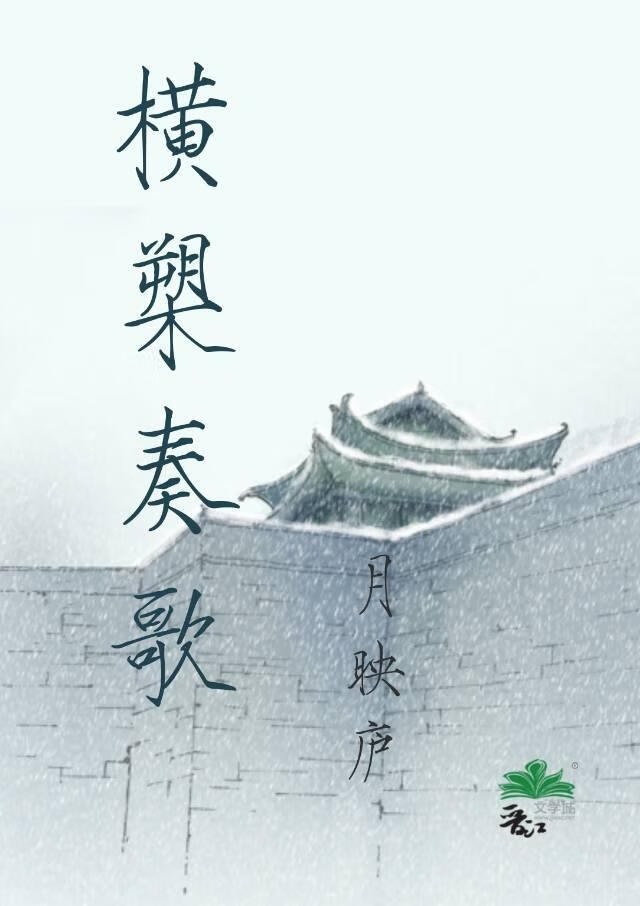 横槊奏歌
月映庐
晋江
文学城
www.jjwxc.net